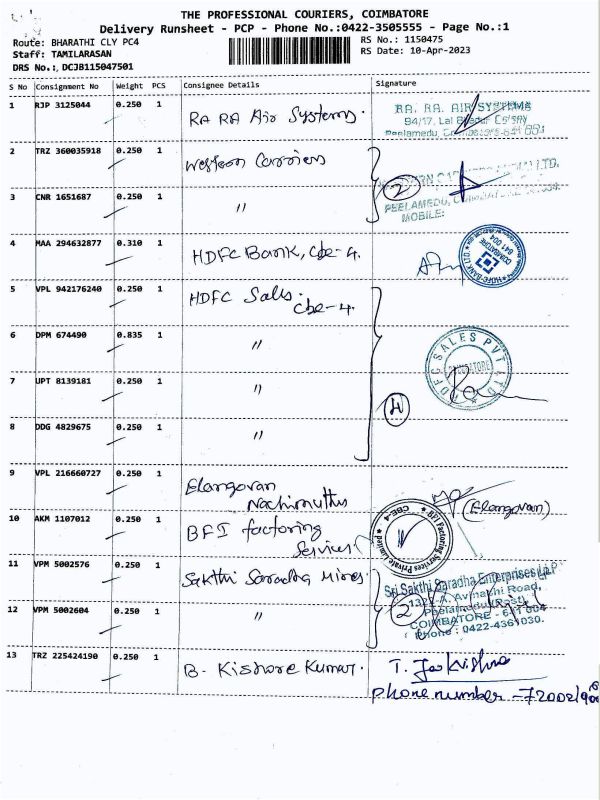 THE PROFESSIONAL COURIERS, COIMBATORE
Delivery Runsheet - PCP - Phone No.:0422-3505555 - Page No.:1
Route: BHARATHI CLY PC4
RS No.: 1150475
Staff: TAMILARASAN
RS Date: 10-Apr-2023
DRS No.:, DCJB115047501
S No Consignment No Weight PCS Consignee Details Signature
1 RJP 3125044 0.250 1 RA RA Air Systems.
RA. RA. AIR SYSTEMS
94/17, Lal
Peelamedu,
2 TRZ 360035918 0.250 1 Western Carriers
2
3 CNR 1651687 0.250 1 "
PEELAMEDU,
MOBILE:
4 MAA 294632877 0.310 1 HDFC Bank, Cbe-4.
HDFC BANK LTD.
COIMBATORE
641 004
5 VPL 942176240 0.250 1 HDFC Sales.
Cbe-4.
6 DPM 674490 0.835 1 "
HDFC SALES PVT LTD
7 UPT 8139181 0.250 1 "
4
8 DDG 4829675 0.250 1 "
9 VPL 216660727 0.250 1 Elangovan
Nachimuthu
(Elangovan)
10 AKM 1107012 0.250 1 BFI factoring
Services
Factoring Services Private Limited
CBE-4
11 VPM 5002576 0.250 1 Sakthi Saradha Mires.
Sri Sakthi Saradha Enterprises LLP
Avinashi Road,
Peelamedu Post,
12 VPM 5002604 0.250 1 "
2
COIMBATORE - 641 004
Phone : 0422-4361030.
13 TRZ 225424190 0.250 1 B. Kishore Kumar.
Phone number -